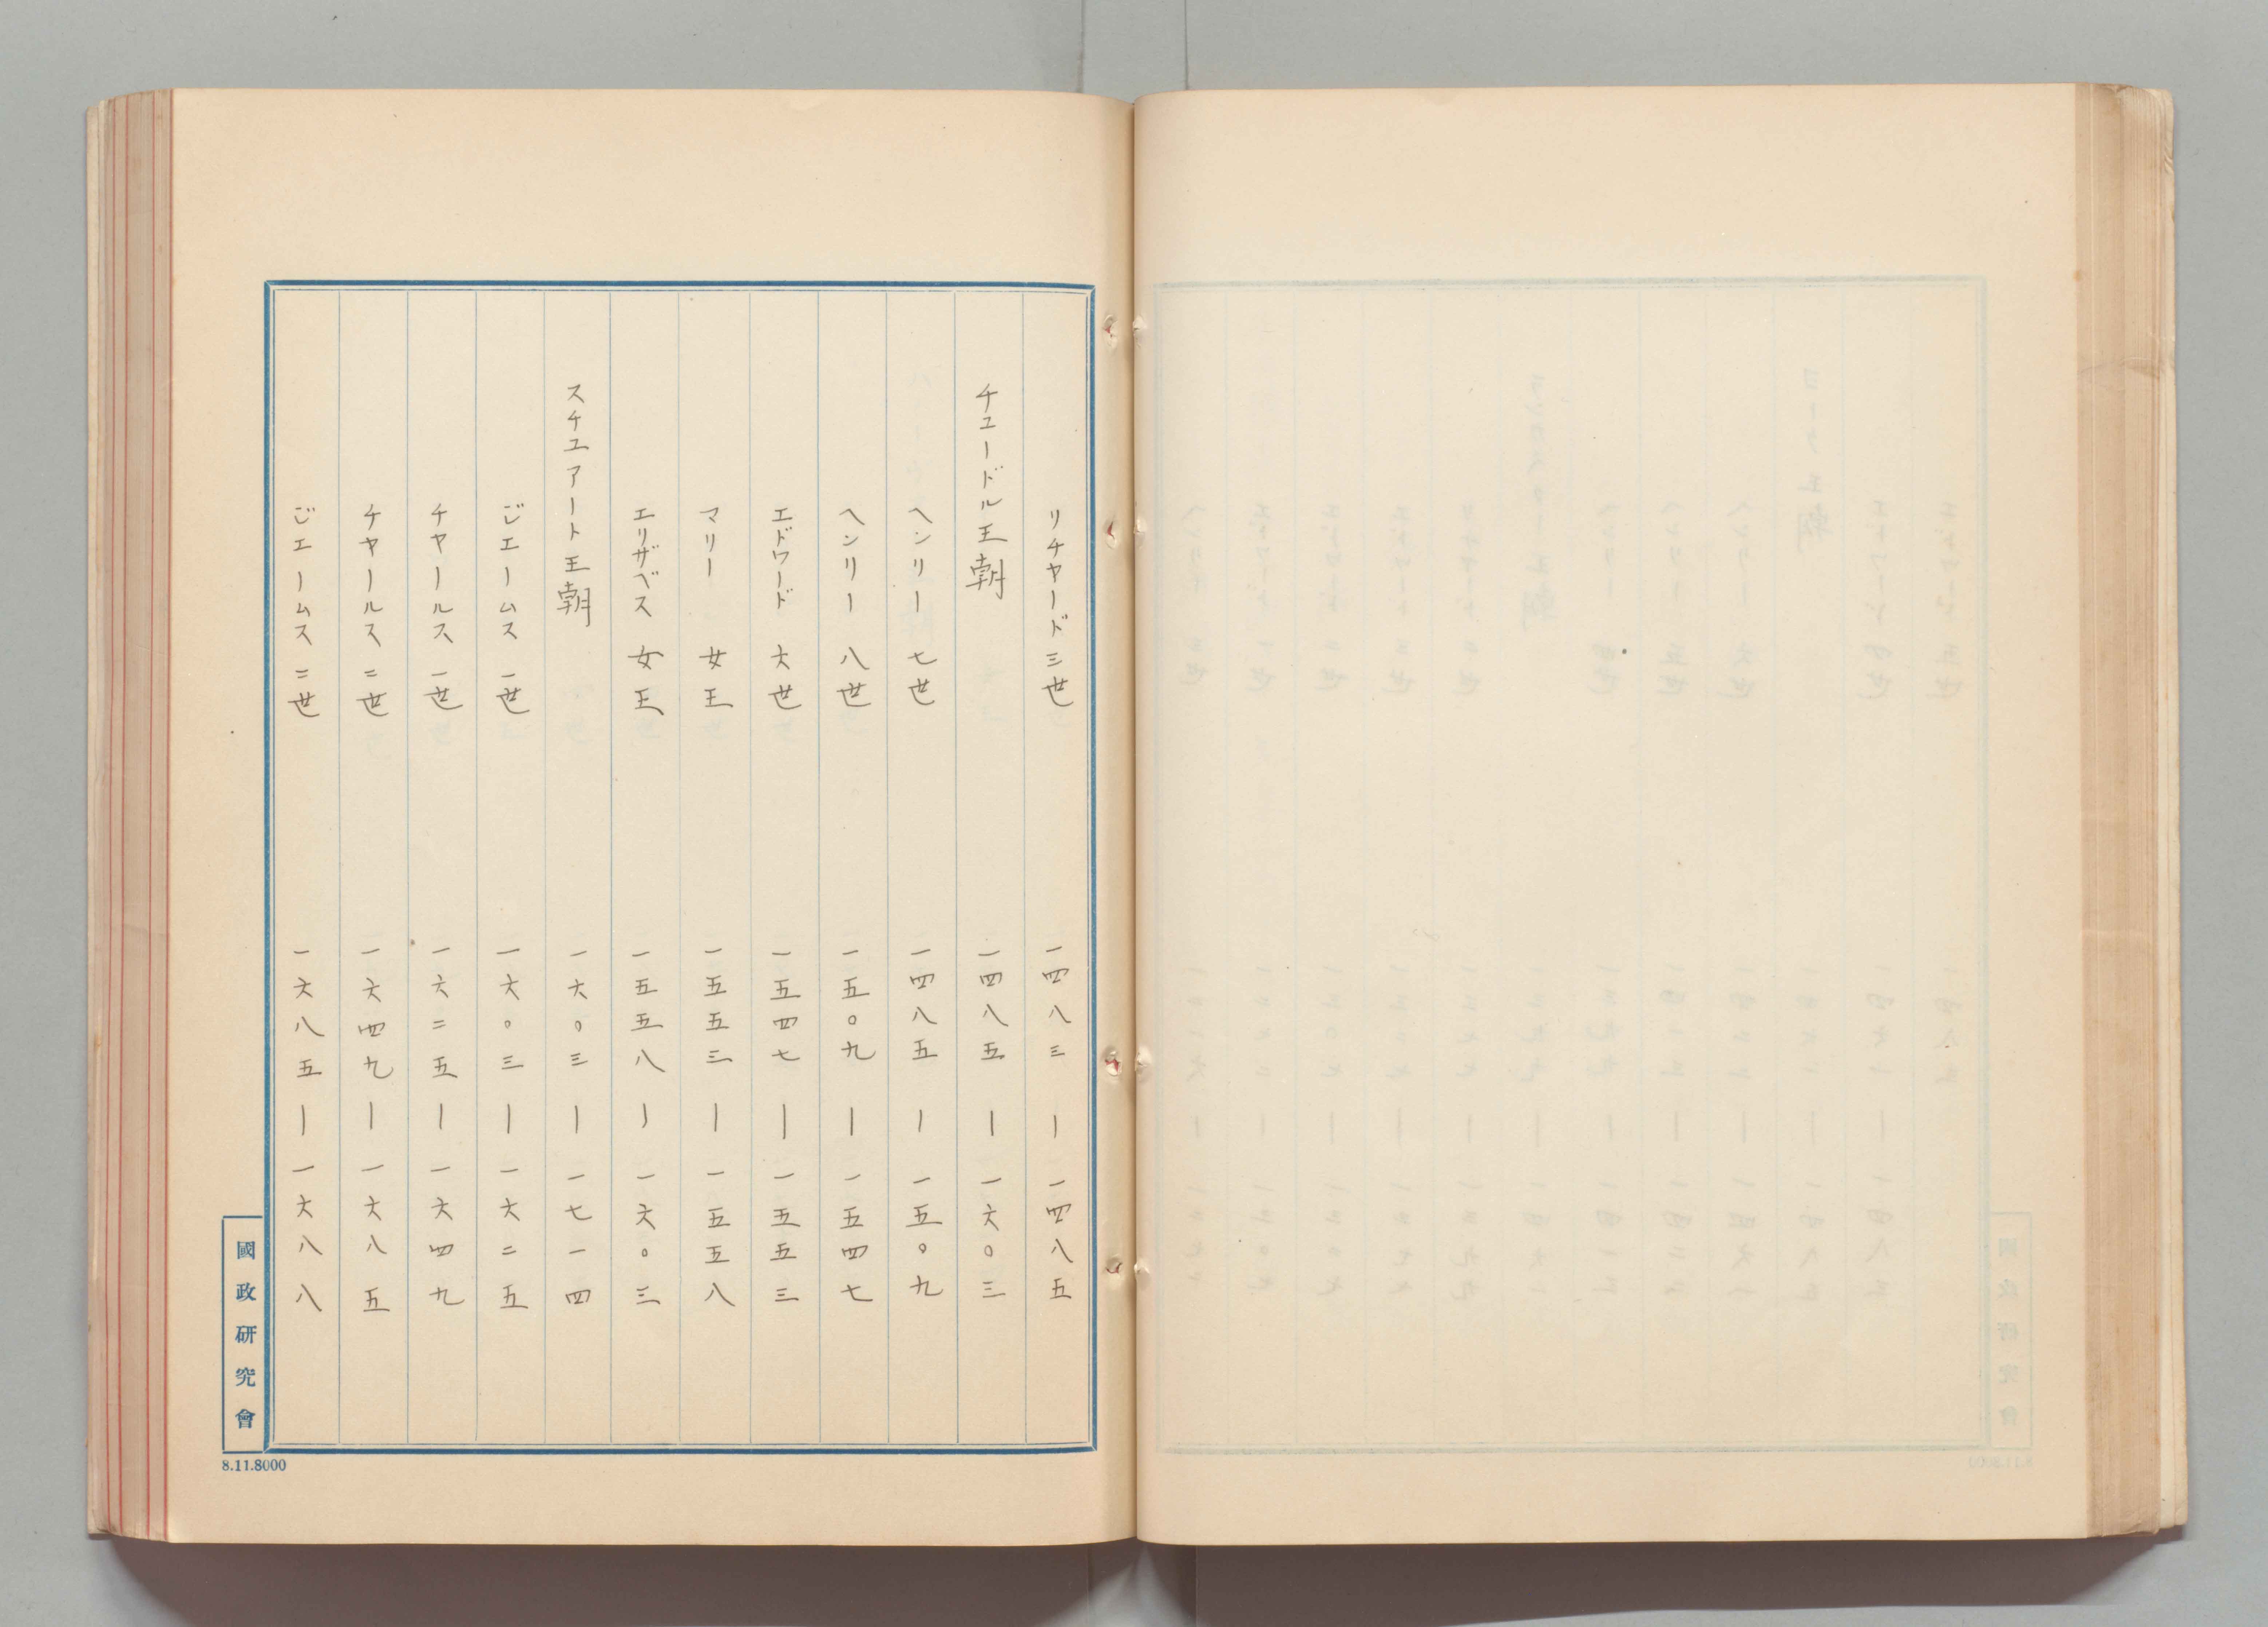 リチヤード三世　一四八三ー一四八五
チユードル王朝　一四八五ー一六〇三
ヘンリー七世　一四八五ー一五〇九
ヘンリー八世　一五〇九ー一五四七
エドワード六世　一五四七ー一五五三
マリー女王　一五五三ー一五五八
エリザベス女王　一五五八ー一六〇三
スチユアート王朝　一六〇三ー一七一四
ジエームス一世　一六〇三ー一六二五
チヤールス一世　一六二五ー一六四九
チヤールス二世　一六四九ー一六八五
ジエームス二世　一六八五ー一六八八
國政研究會
8.11.8000